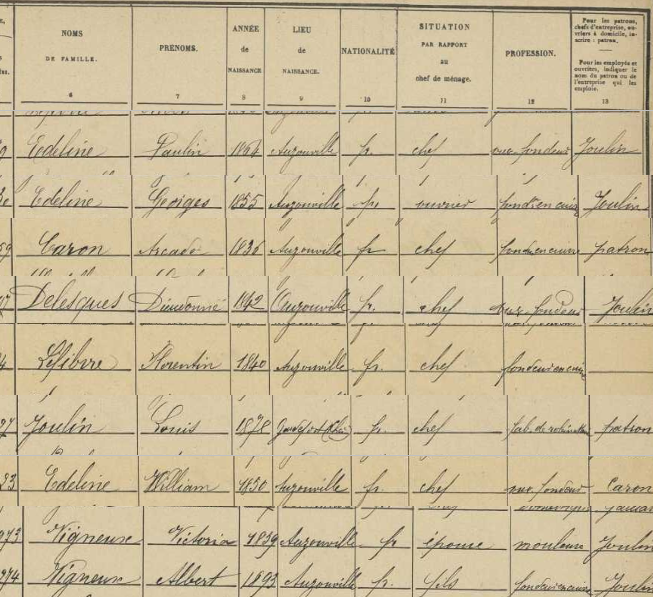 NOMS DE FAMILLE. PRÉNOMS. ANNÉE de NAISSANCE. LIEU de NAISSANCE. NATIONALITÉ SITUATION PAR RAPPORT au chef de ménage. PROFESSION. Pour les patrons, chefs d'entreprise, ouvriers à domicile, inscrire : patron. Pour les employés et ouvriers, indiquer le nom du patron ou de l'entreprise qui les emploie.
6 7 8 9 10 11 12 13
Edeline Paulin Auzouville fr. chef ouv. fondeur Joulin
Edeline Georges 1855 Auzouville fr. ouvrier fond. en cuiv Joulin
59 Caron Arcade 1836 Auzouville fr chef fondr en cuivre patron
Delesques Dieudonné 1862 Auzouville fr. chef ouv. fondeur Joulin
Lefibvre Florentin 1840 Auzouville fr. chef fondeur en cuivre
27 Joulin Louis 1878 fr. chef fab. de robinets patron
23 Edeline William 1850 Auzouville fr. chef ouv. fondeur Caron
973 Vigneux Victoria 1859 Auzouville fr épouse mouleur Joulin
274 Vigneux Albert 1893 Auzouville fr. fils fondeur en cuivre Joulin